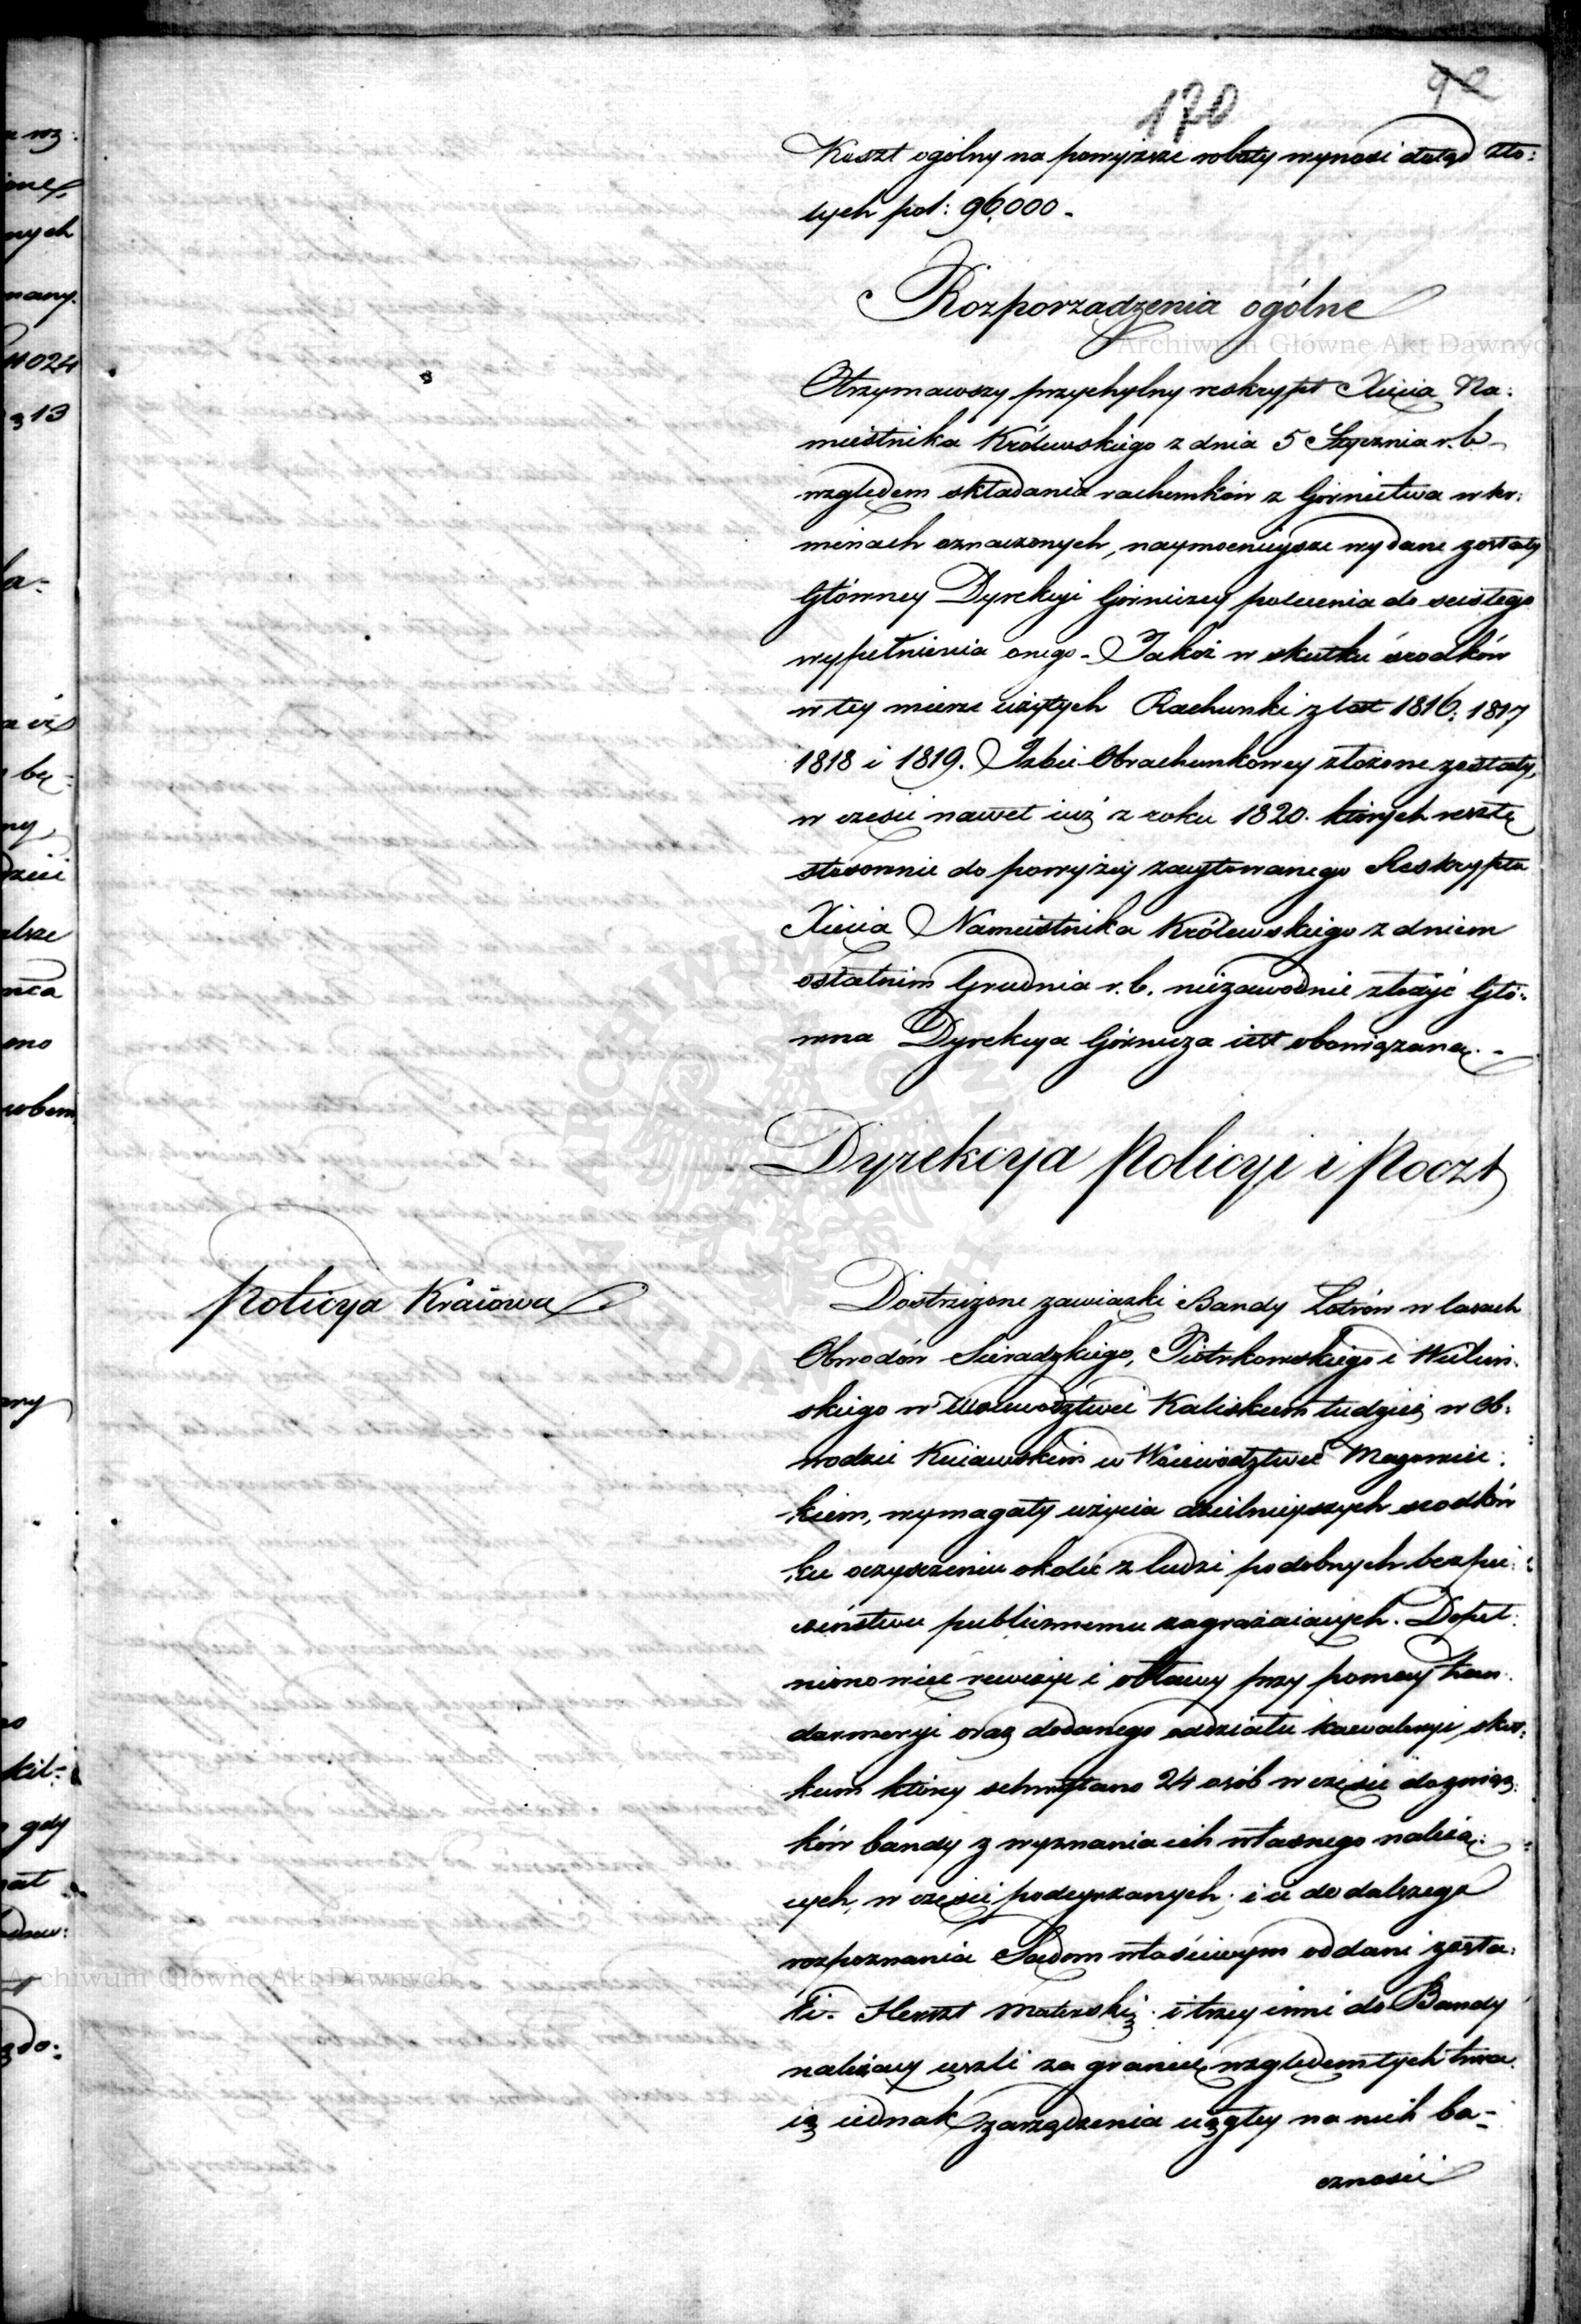 92
170
Koszt ogólny na powyższe roboty wynosi dotąd zło:
tych pol: 96,000 -
Rozporządzenia ogólne
Otrzymawszy przychylny reskrypt Xięcia Na:
miestnika Królewskiego z dnia 5 Stycznia r. b.
względem składania rachunków z Górnictwa w ter:
minach oznaczonych, naymocnieysze wydane zostały
Główney Dyrekcyi Górniczey polecenia do scisłego
wypełnienia onego - Jakoż w skutku środków
w tey mierze użytych Rachunki z lat 1816, 1817
1818 i 1819. Izbie Obrachunkowey złożone zostały,
w części nawet iuż z roku 1820. których resztę
stosownie do powyżey zacytowanego Reskryptu
Xięcia Namiestnika Królewskiego z dniem
ostatnim Grudnia r. b. niezawodnie złożyć Głó:
wna Dyrekcya Górnicza iest obowiązana. -
Dyrekcya Policyi i Poczt
Policya Kraiowa
Dostrzeżone zawiązki Bandy Łotrów w lasach
Obwodów Sieradzkiego, Piotrkowskiego i Wieluń:
skiego w Woiewództwie Kaliskiem tudzież w Ob:
wodzie Kuiawskim w Woiewództwie Mazowiec:
kiem, wymagały użycia dzielnieyszych srodków
ku oczyszczeniu okolic z ludzi podobnych bezpie:
czeństwu publicznemu zagrażaiących. Dopeł:
niono więc rewizye i obławy przy pomocy Żan:
darmeryi oraz dodanego oddziału kawaleryi, skut:
kiem któréy schwytano 24 osób w części do związ:
ków bandy z wyznania ich własnego należą:
cych, w części podeyrzanych, i ci do dalszego
rozpoznania Sądom właściwym oddani zosta:
li. Herszt Materski i trzey inni do Bandy
należący uszli za granicę, względem tych trwa:
ią iednak zarządzenia ciągłey na nich ba-
czności
Archiwum Główne Akt Dawnych
Archiwum Główne Akt Dawnych